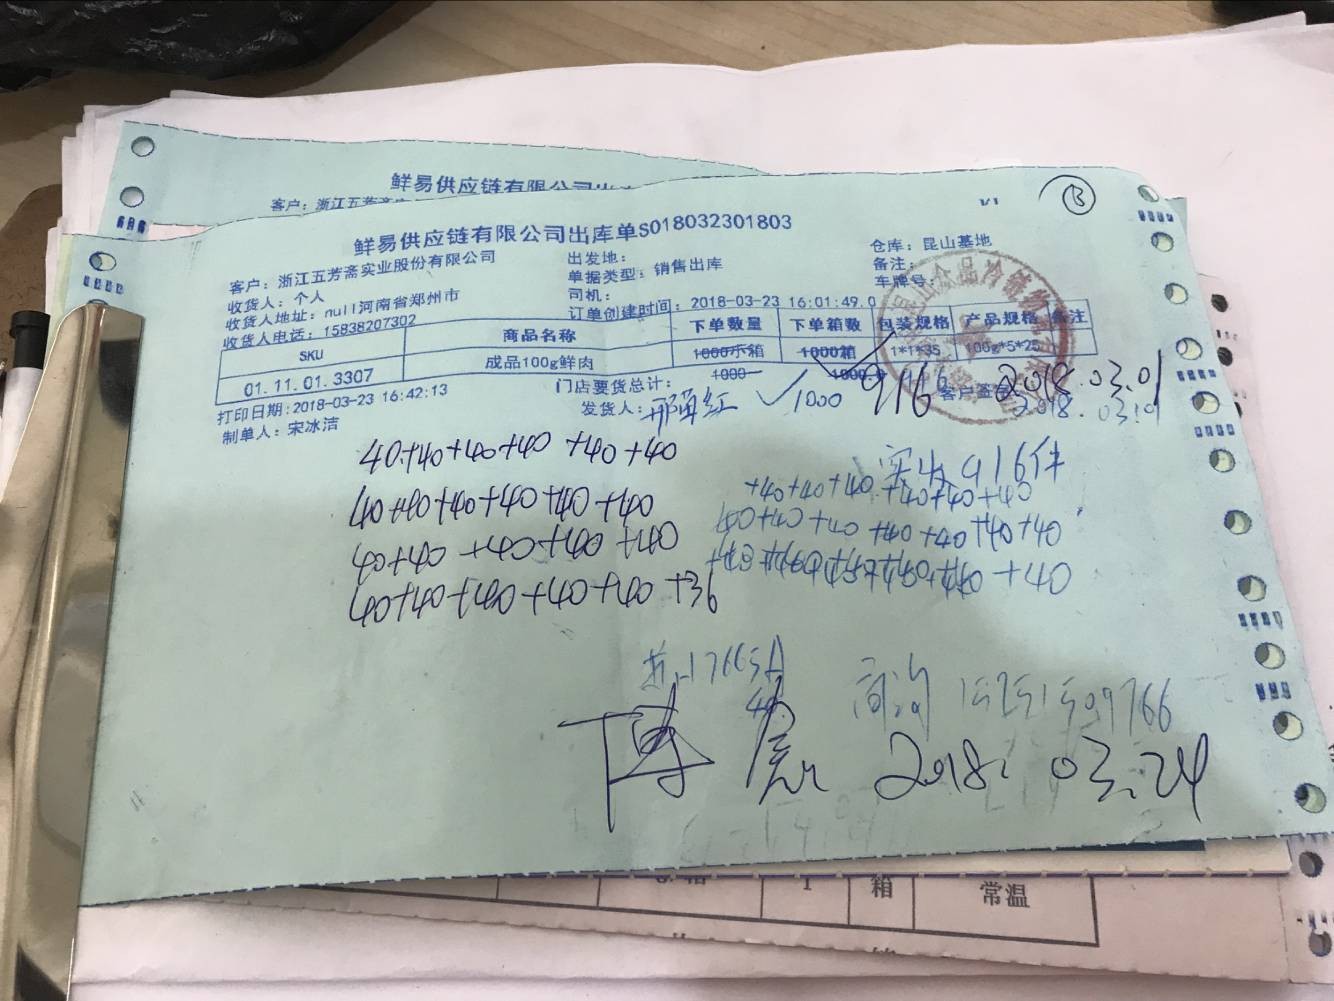 鲜易供应链有限公司出
客户: 浙江五芳斋
鲜易供应链有限公司出库单SO18032301803
1/1
B
客户: 浙江五芳斋实业股份有限公司
出发地:
仓库: 昆山基地
收货人: 个人
单据类型: 销售出库
备注:
收货人地址: null河南省郑州市
司机:
车牌号:
收货人电话: 15838207302
订单创建时间: 2018-03-23 16:01:49.0
SKU 商品名称 下单数量 下单箱数 包装规格 产品规格 备注
01.11.01.3307 成品100g鲜肉 1000 箱 1000箱 1*1*35 100g*5*25
门店要货总计: 1000 1000.0
打印日期:2018-03-23 16:42:13
发货人: 1000 916 客户签 2018.03.01
制单人: 宋冰洁
2018.03.01
实收916件
40+40+40+40 +40+40
+40+40+40 +40+40+40
40+40+40+40+40+40
40+40+40 +40+40+40+40
40+40 +40+40 +40
+40
40+40+40+40+40+36
15251509766
2018.03.24
箱 1 箱 常温